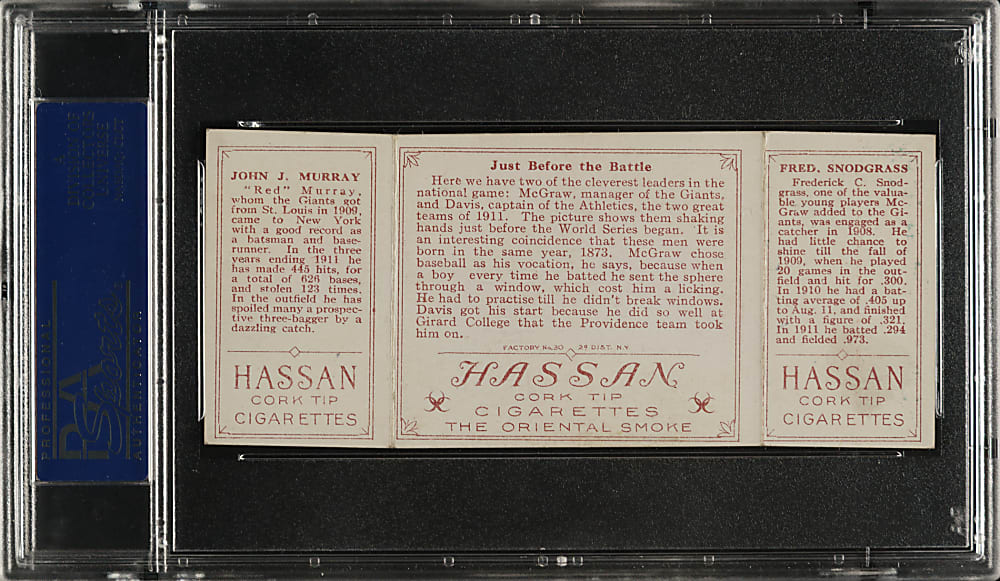 PROFESSIONAL
PSA
Sports
AUTHENTICATOR
JOHN J. MURRAY
"Red" Murray,
whom the Giants got
from St. Louis in 1909,
came to New York
with a good record as
a batsman and base-
runner. In the three
years ending 1911 he
has made 445 hits, for
a total of 626 bases,
and stolen 123 times.
In the outfield he has
spoiled many a prospec-
tive three-bagger by a
dazzling catch.
HASSAN
CORK TIP
CIGARETTES
Just Before the Battle
Here we have two of the cleverest leaders in the
national game: McGraw, manager of the Giants,
and Davis, captain of the Athletics, the two great
teams of 1911. The picture shows them shaking
hands just before the World Series began. It is
an interesting coincidence that these men were
born in the same year, 1873. McGraw chose
baseball as his vocation, he says, because when
a boy every time he batted he sent the sphere
through a window, which cost him a licking.
He had to practise till he didn't break windows.
Davis got his start because he did so well at
Girard College that the Providence team took
him on.
FACTORY No. 30 2ND DIST. N.Y.
HASSAN
CORK TIP
CIGARETTES
THE ORIENTAL SMOKE
FRED. SNODGRASS
Frederick C. Snod-
grass, one of the valua-
ble young players Mc-
Graw added to the Gi-
ants, was engaged as a
catcher in 1908. He
had little chance to
shine till the fall of
1909, when he played
20 games in the out-
field and hit for .300.
In 1910 he had a bat-
ting average of .405 up
to Aug. 11, and finished
with a figure of .321.
In 1911 he batted .294
and fielded .973.
HASSAN
CORK TIP
CIGARETTES